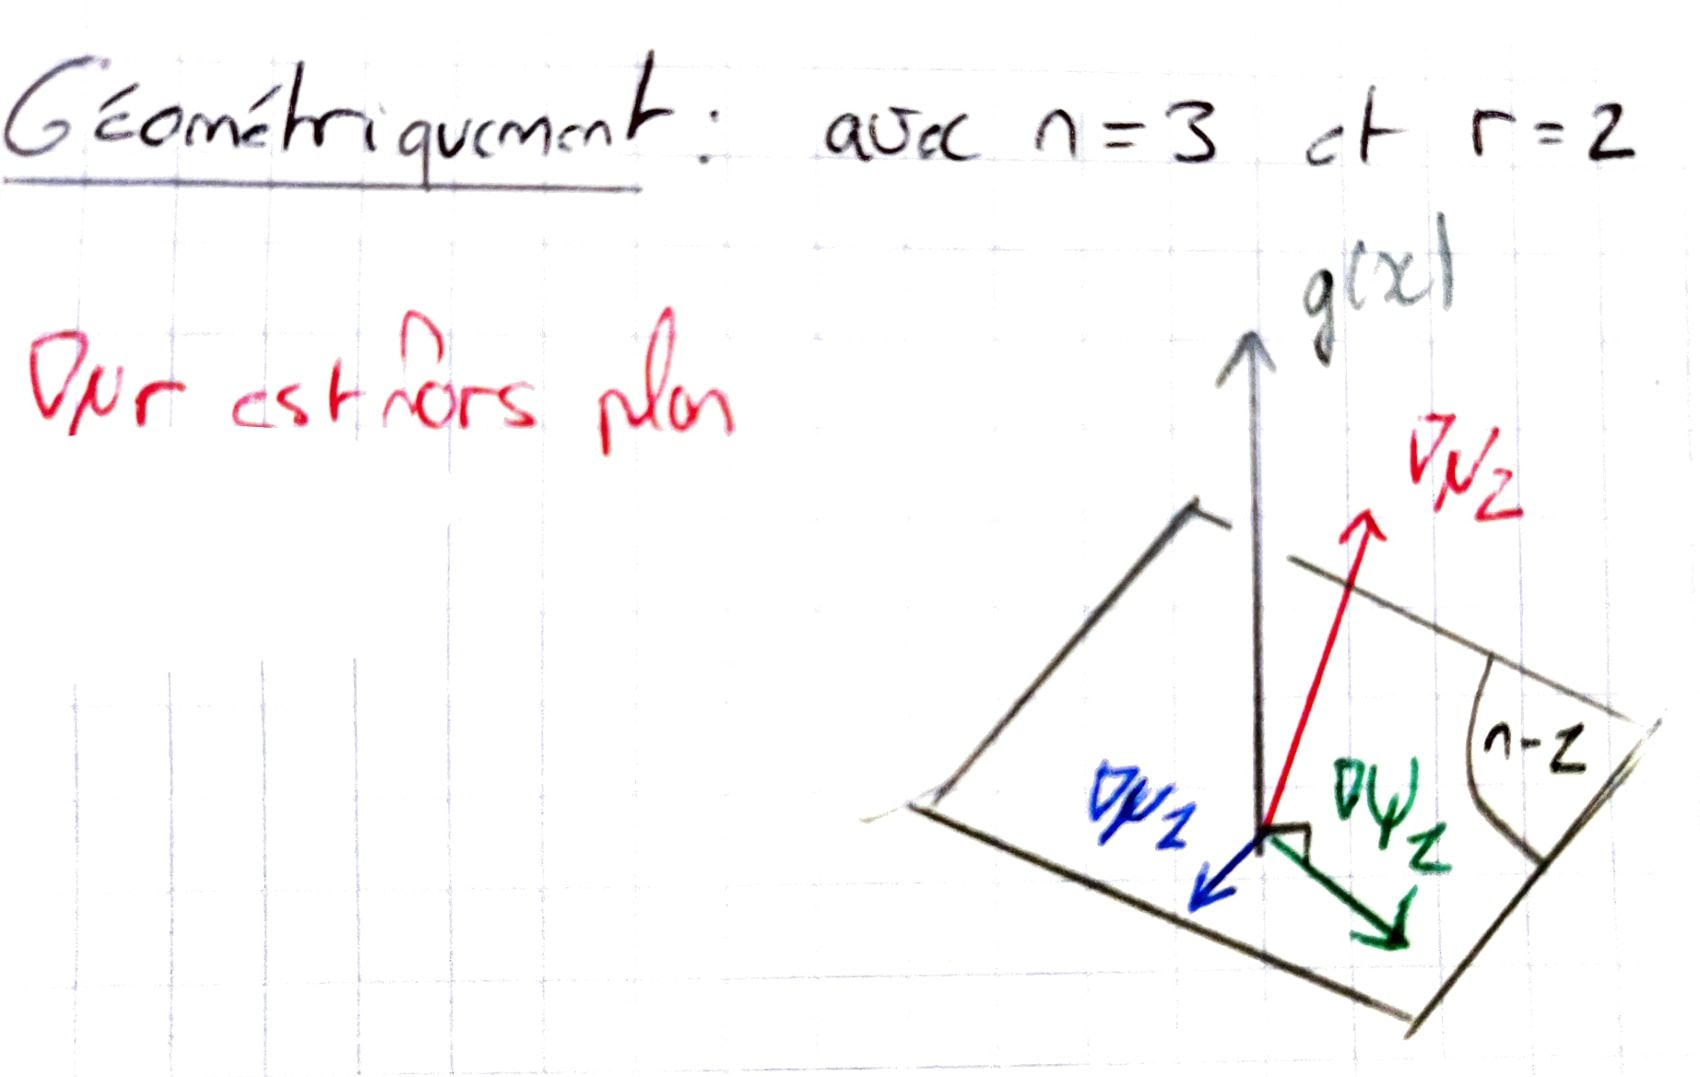 Géométriquement : avec n = 3 et r = 2
g(x)
∇μr est hors plan
∇μ2
n-2
∇μ1
∇ψ1